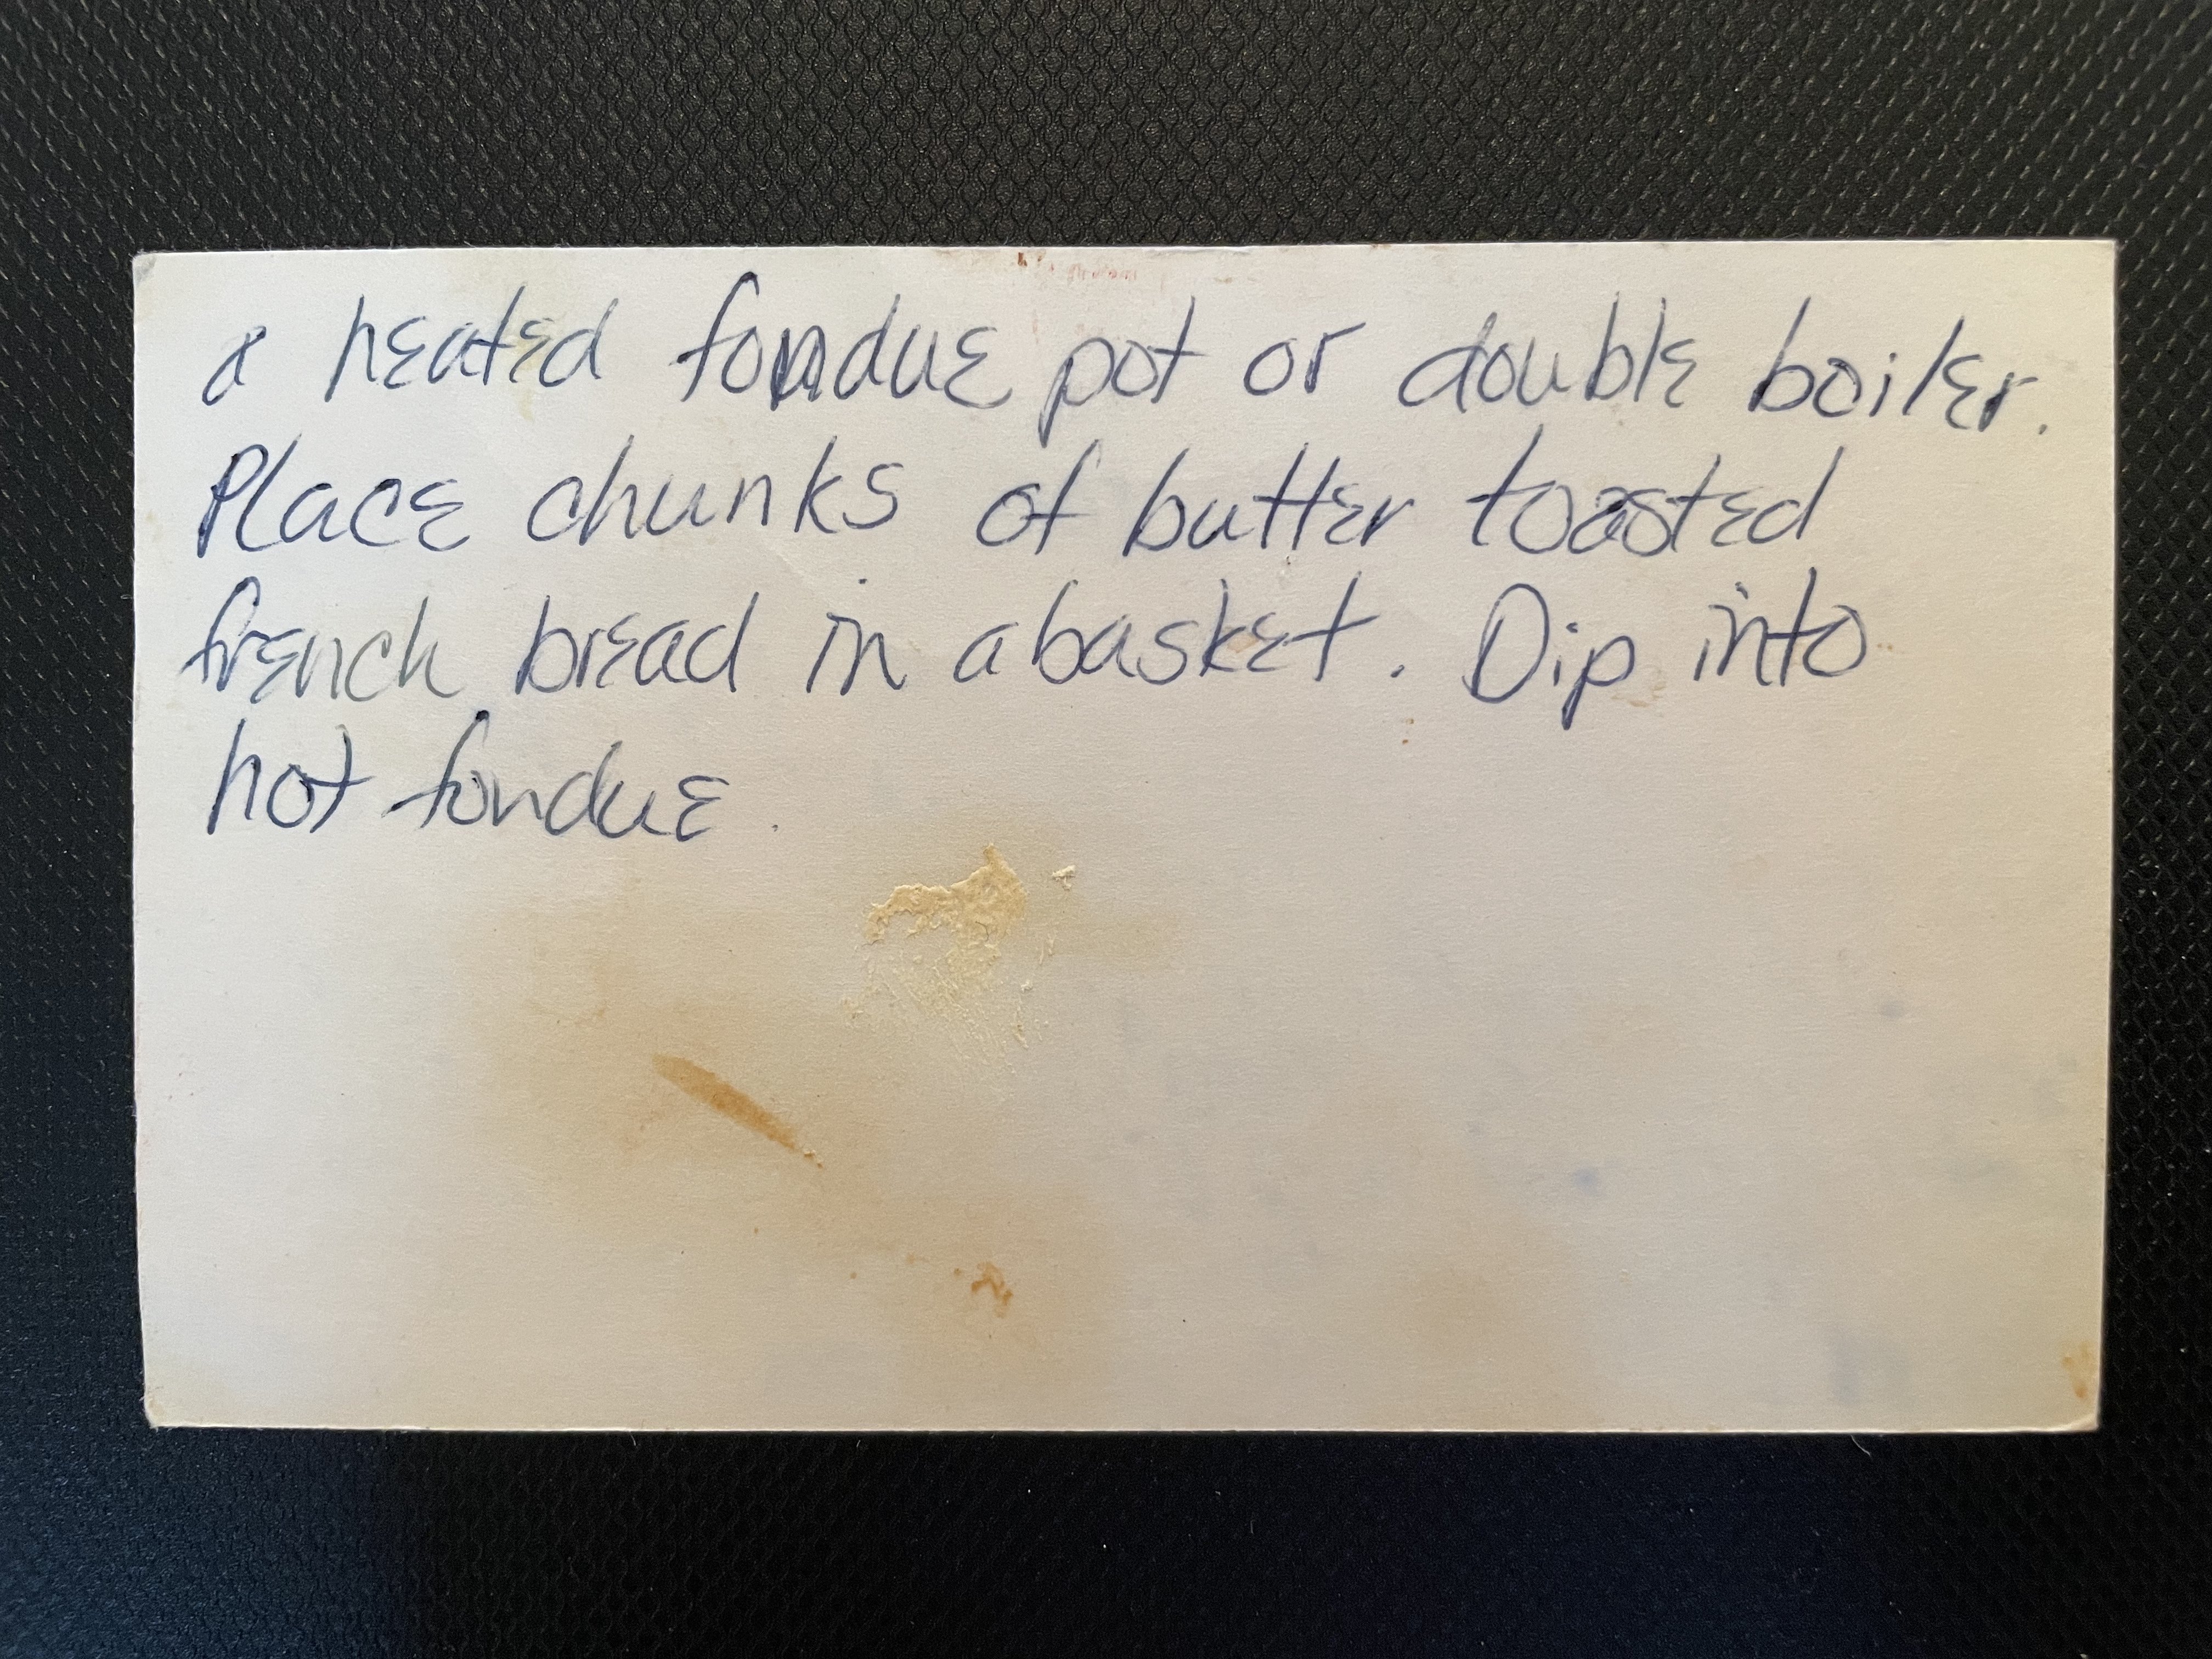 a heated fondue pot or double boiler.
Place chunks of butter toasted
french bread in a basket. Dip into
hot fondue.